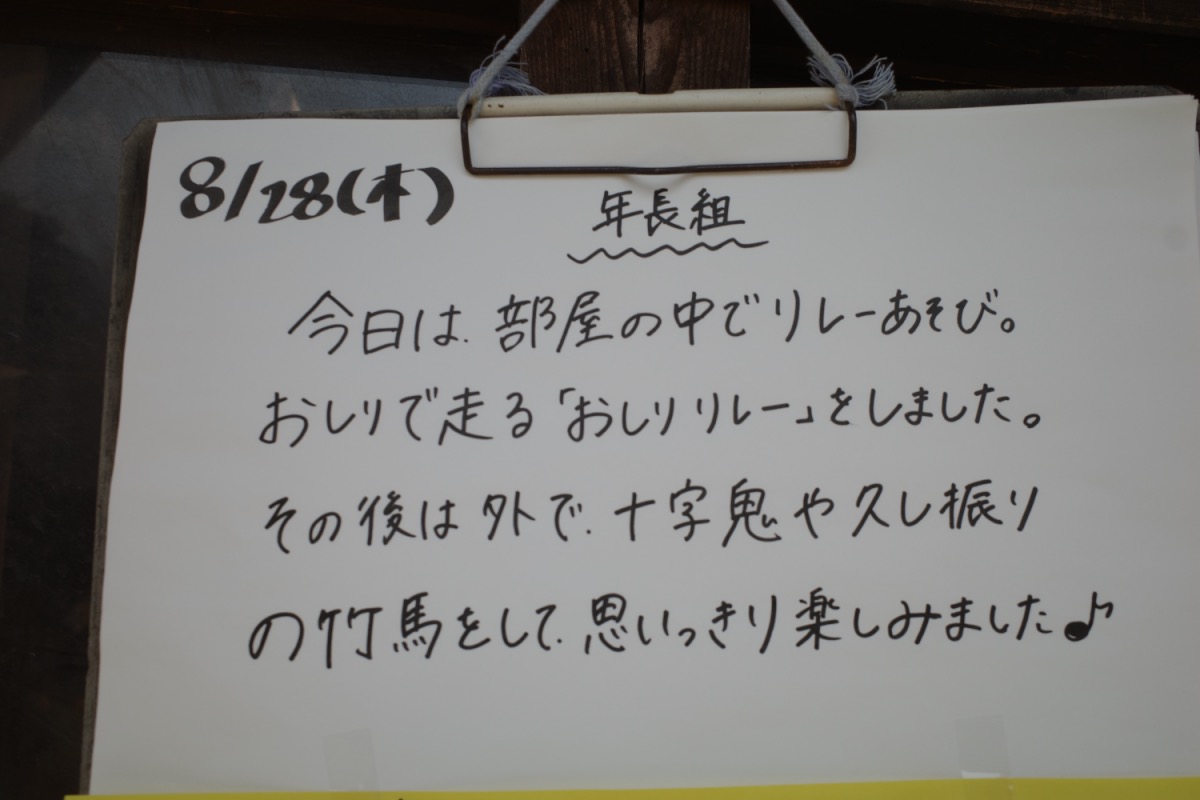 8/28(木)
年長組
今日は、部屋の中でリレーあそび。
おしりで走る「おしりリレー」をしました。
その後は外で、十字鬼や久し振り
の竹馬をして、思いっきり楽しみました♪